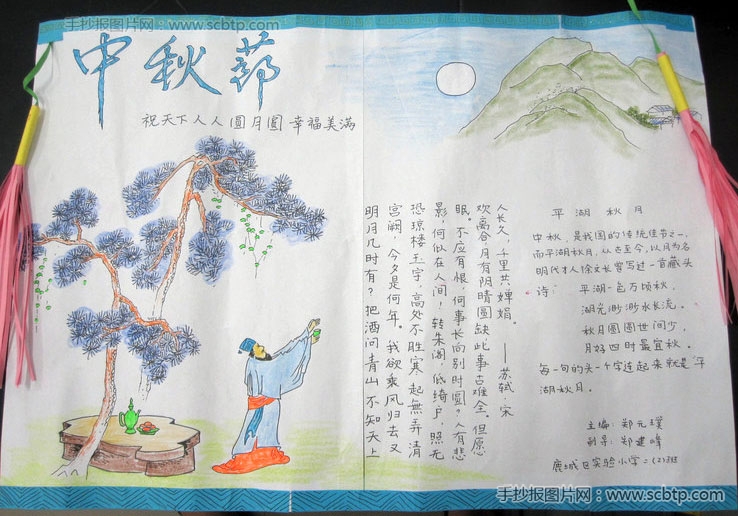 手抄报图片网：www.scbtp.com
中秋節
祝天下人人圓月圓 幸福美滿
明月几时有？把酒问青山 不知天上
宫阙，今夕是何年。我欲乘风归去又
恐琼楼玉宇，高处不胜寒 起無弄清
影，何似在人间！转朱阁，低绮户，照无
眠。不应有恨，何事长向别时圆？人有悲
欢离合，月有阴晴圆缺此事古难全。但愿
人长久，千里共婵娟。——苏轼·宋
平湖秋月
中秋，是我国的传统佳节之一，
而平湖秋月，从古至今，以月为名
明代才人徐文长曾写过一首藏头
诗：平湖一色万顷秋，
湖光渺渺水长流。
秋月圆圆世间少，
月好四时最宜秋。
每一句的头一个字连起来就是"平
湖秋月。
主编：郑元璞
副导：郑建峰
鹿城区实验小学二(2)班
手抄报图片网：www.scbtp.com